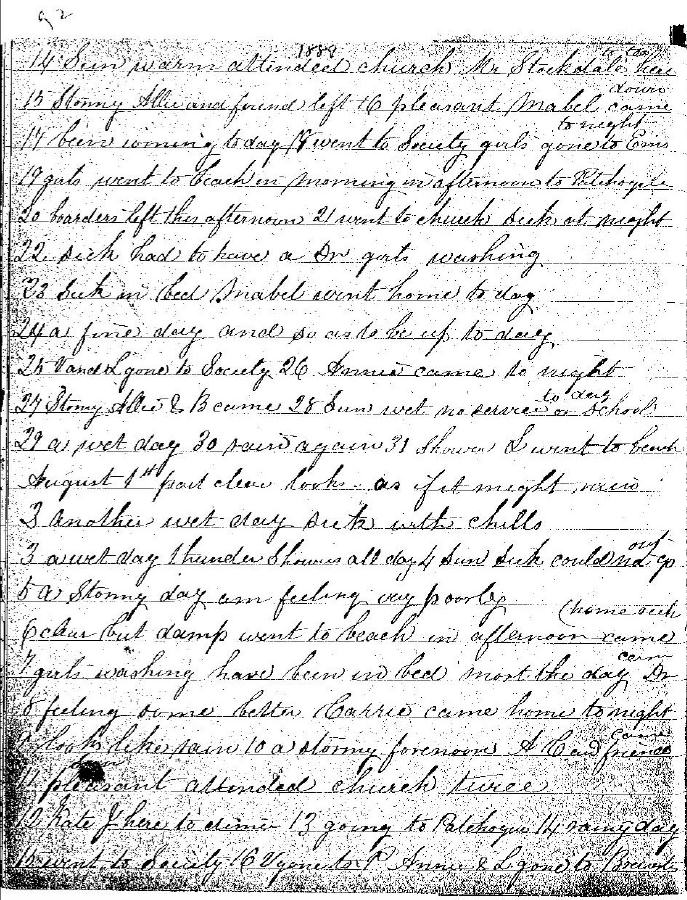 92
1889
14 Sun warm attended church Mr Stockdale here to tea
15 Stormy Allie and friend left 16 pleasant Mabel came down
17 been coming to day 18 went to Society girls gone to to night
19 girls went to beach in morning in afternoon to Patchogue
20 boarders left this afternoon 21 went to church sick at night
22 sick had to have a Dr girls washing
23 Sick in bed Mabel went home to day
24 a fine day and so as to be up to day
25 V and L gone to Society 26 Annie came to night
27 Stormy Allie & B came 28 Sun wet no service or School to day
29 a wet day 30 rain again 31 shower L went to beach
August 1st part clear looks as if it might
3 another wet day sick with chills
3 a wet day thunder showers all day 4 Sun sick could not go out
5 a Stormy day am feeling very poorly
6 clear but damp went to beach in afternoon came (home sick
7 girls washing have been in bed most the day Dr came
8 feeling some better Carrie came home to night
9 looks like rain 10 a stormy forenoon A C and friend came
11 pleasant attended church twice
12 Kate J here to dinner 13 going to Patchogue 14 rainy day
15 went to Society 16 V gone to P Annie & L gone to